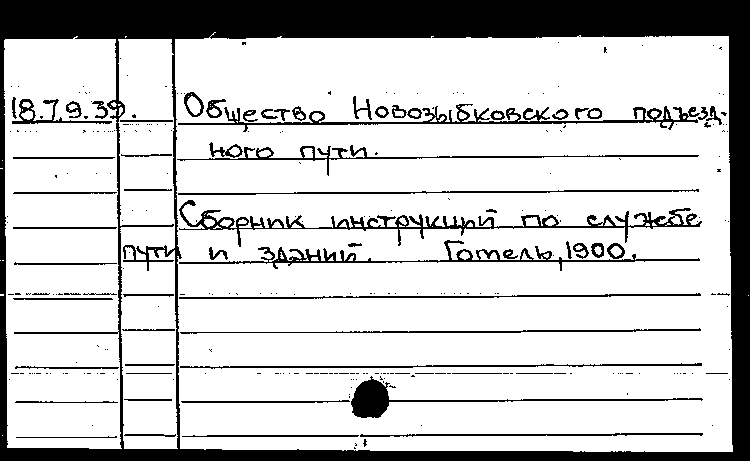 18.7.9.39. Общество Новозыбковского подъезд-
ного пути.
Сборник инструкций по службе
пути и зданий. Гомель, 1900.